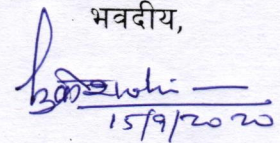 भवदीय,
15/9/2020